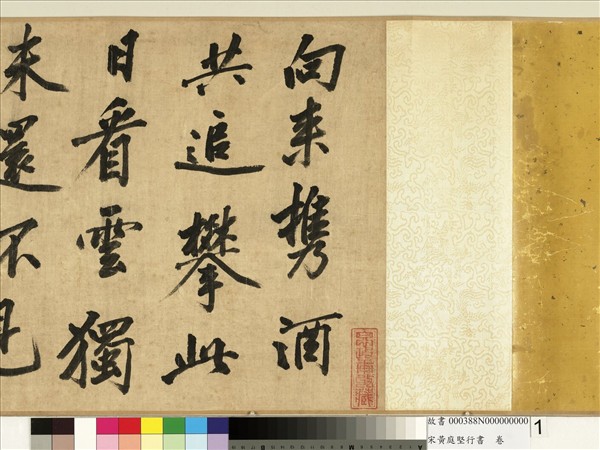 向来携酒
共追攀此
日看雲獨
未還不見
故書 000388N000000000
宋黃庭堅行書 卷
1